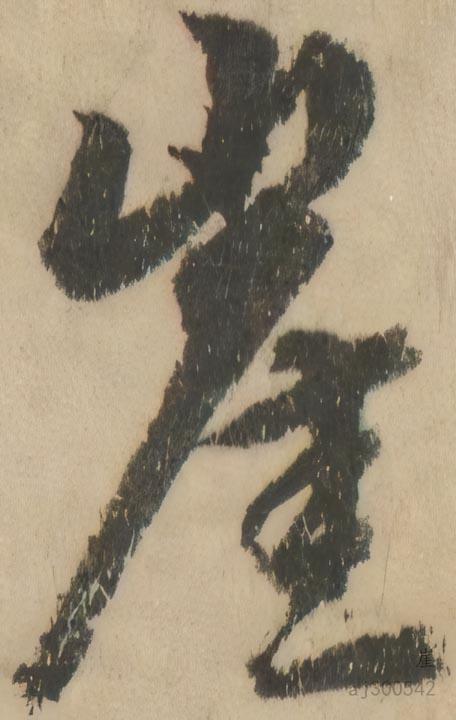 崖
崖
aj300542